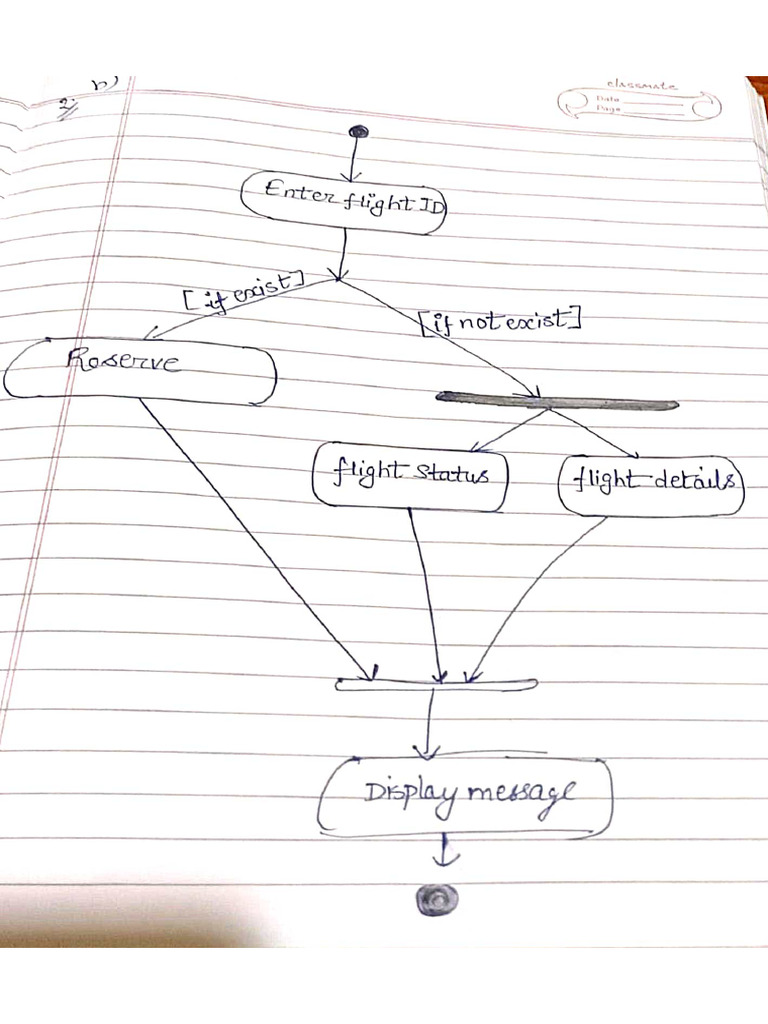 b)
classmate
2.
Date
Page
Enter flight ID
[if exist]
[if not exist]
Reserve
flight status
flight details
Display message